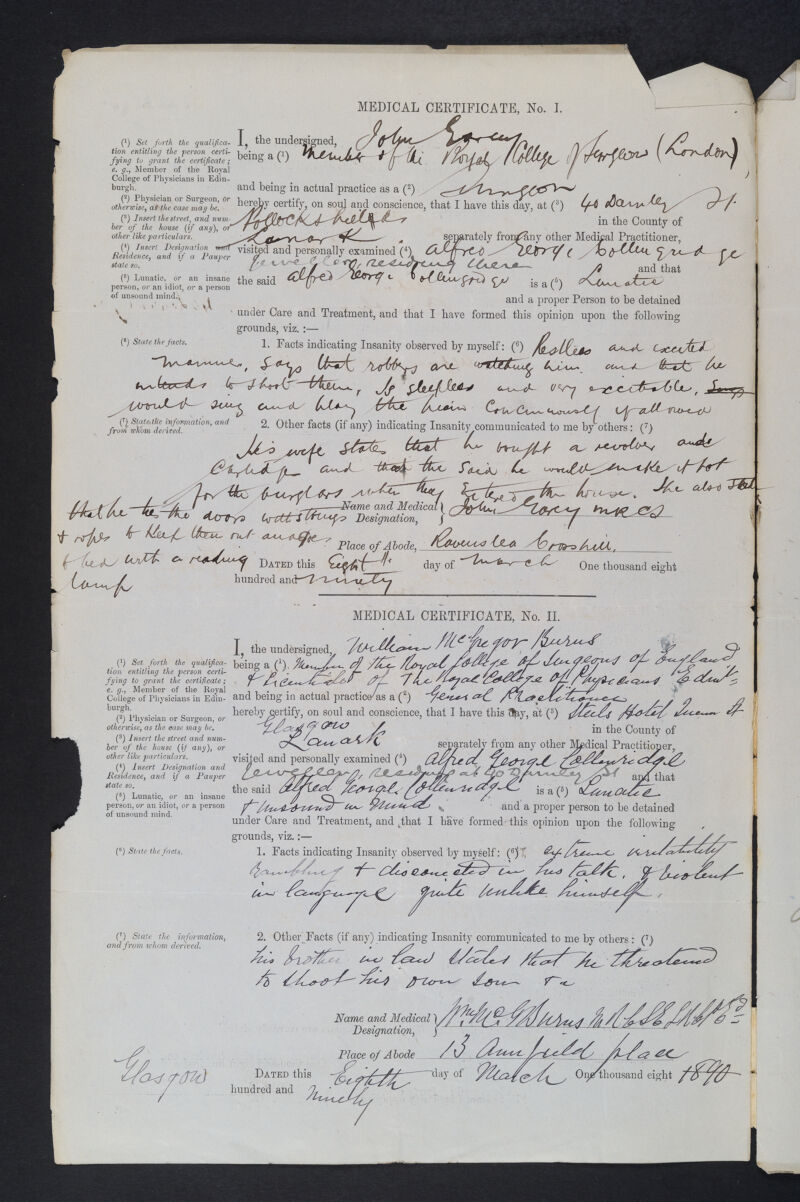 MEDICAL CERTIFICATE, No. I.
(1) Set forth the qualifica-
tion entitling the person certi-
fying to grant the certificate;
e. g., Member of the Royal
College of Physicians in Edin-
burgh.
(2) Physician or Surgeon, or
otherwise, as the case may be.
(3) Insert the street, and num-
ber of the house (if any), or
other like particulars.
(4) Insert Designation and
Residence, and if a Pauper
state so.
(5) Lunatic, or an insane
person, or an idiot, or a person
of unsound mind.
I, the undersigned, John
being a (1) Member of the Royal College of Surgeons (London),
and being in actual practice as a (2) Surgeon
hereby certify, on soul and conscience, that I have this day, at (3) 40 Darnley St.
Pollockshields in the County of
Lanark separately from any other Medical Practitioner,
visited and personally examined (4) Alfred George Collingridge
Jeweller residing there and that
the said Alfred George Collingridge is a (5) Lunatic
and a proper Person to be detained
under Care and Treatment, and that I have formed this opinion upon the following
grounds, viz.:—
(6) State the facts.
1. Facts indicating Insanity observed by myself: (6) Restless and excited
manner, says that robbers are watching him and that he
intends to shoot them, Is sleepless and very excitable, Says
would sing and play the piano continuously if allowed
(7) State the information, and
from whom derived.
2. Other facts (if any) indicating Insanity communicated to me by others: (7)
His wife states that he bought a revolver and
and that the said he would make it hot
for the burglars when they entered the house. She also states
that he the doors with strings
& ropes to keep them out and
& bed with a reading
lamp
Name and Medical Designation, } John MRCS
Place of Abode, Ravenslea Crosshill.
DATED this Eight day of March One thousand eight
hundred and ninety
MEDICAL CERTIFICATE, No. II.
(1) Set forth the qualifica-
tion entitling the person certi-
fying to grant the certificate;
e. g., Member of the Royal
College of Physicians in Edin-
burgh.
(2) Physician or Surgeon, or
otherwise, as the case may be.
(3) Insert the street and num-
ber of the house (if any), or
other like particulars.
(4) Insert Designation and
Residence, and if a Pauper
state so.
(5) Lunatic, or an insane
person, or an idiot, or a person
of unsound mind.
I, the undersigned, William McGregor Burns
being a (1) Member of the Royal College of Surgeons of England
& Licentiate of The Royal College of Physicians Edinr
and being in actual practice as a (2) General Practitioner
hereby certify, on soul and conscience, that I have this day, at (3) Steels Hotel Queen St
Glasgow in the County of
Lanark separately from any other Medical Practitioner,
visited and personally examined (4) Alfred George Collenridge
Jeweller, residing at 40 Darnley St and that
the said Alfred George Collenridge is a (5) Lunatic
& unsound in mind. and a proper person to be detained
under Care and Treatment, and that I have formed this opinion upon the following
grounds, viz.:—
(6) State the facts.
1. Facts indicating Insanity observed by myself: (6) extreme irritability
rambling & disconected in his talk, & violent
in language quite unlike himself.
(7) State the information,
and from whom derived.
2. Other Facts (if any) indicating Insanity communicated to me by others: (7)
his brother in law states that he threatened
to shoot his own son &c
Name and Medical Designation, } Wm McG Burns
Place of Abode 13 Annfield place
Glasgow
DATED this Eighth day of March One thousand eight 1890
hundred and Ninety